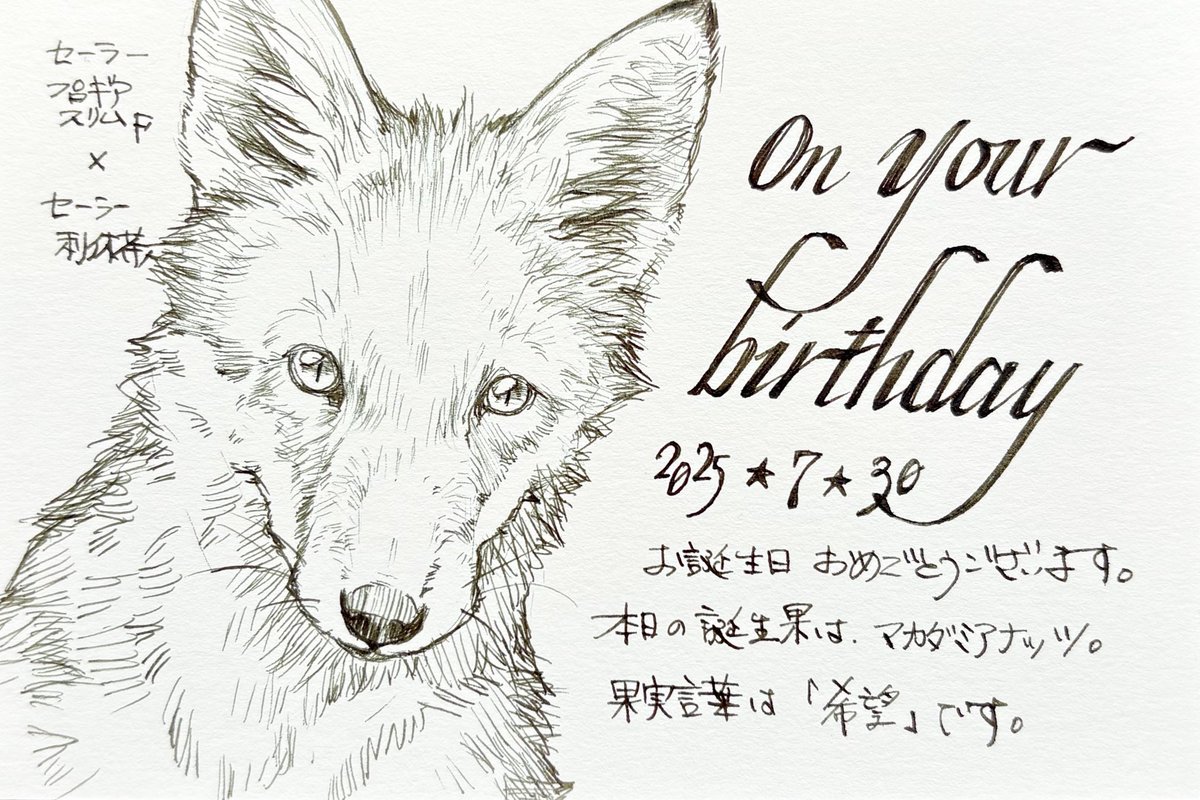 セーラー
プロギア
スリムF
×
セーラー
利休茶
On your
birthday
2025★7★30
お誕生日 おめでとうございます。
本日の誕生果は、マカダミアナッツ。
果実言葉は「希望」です。